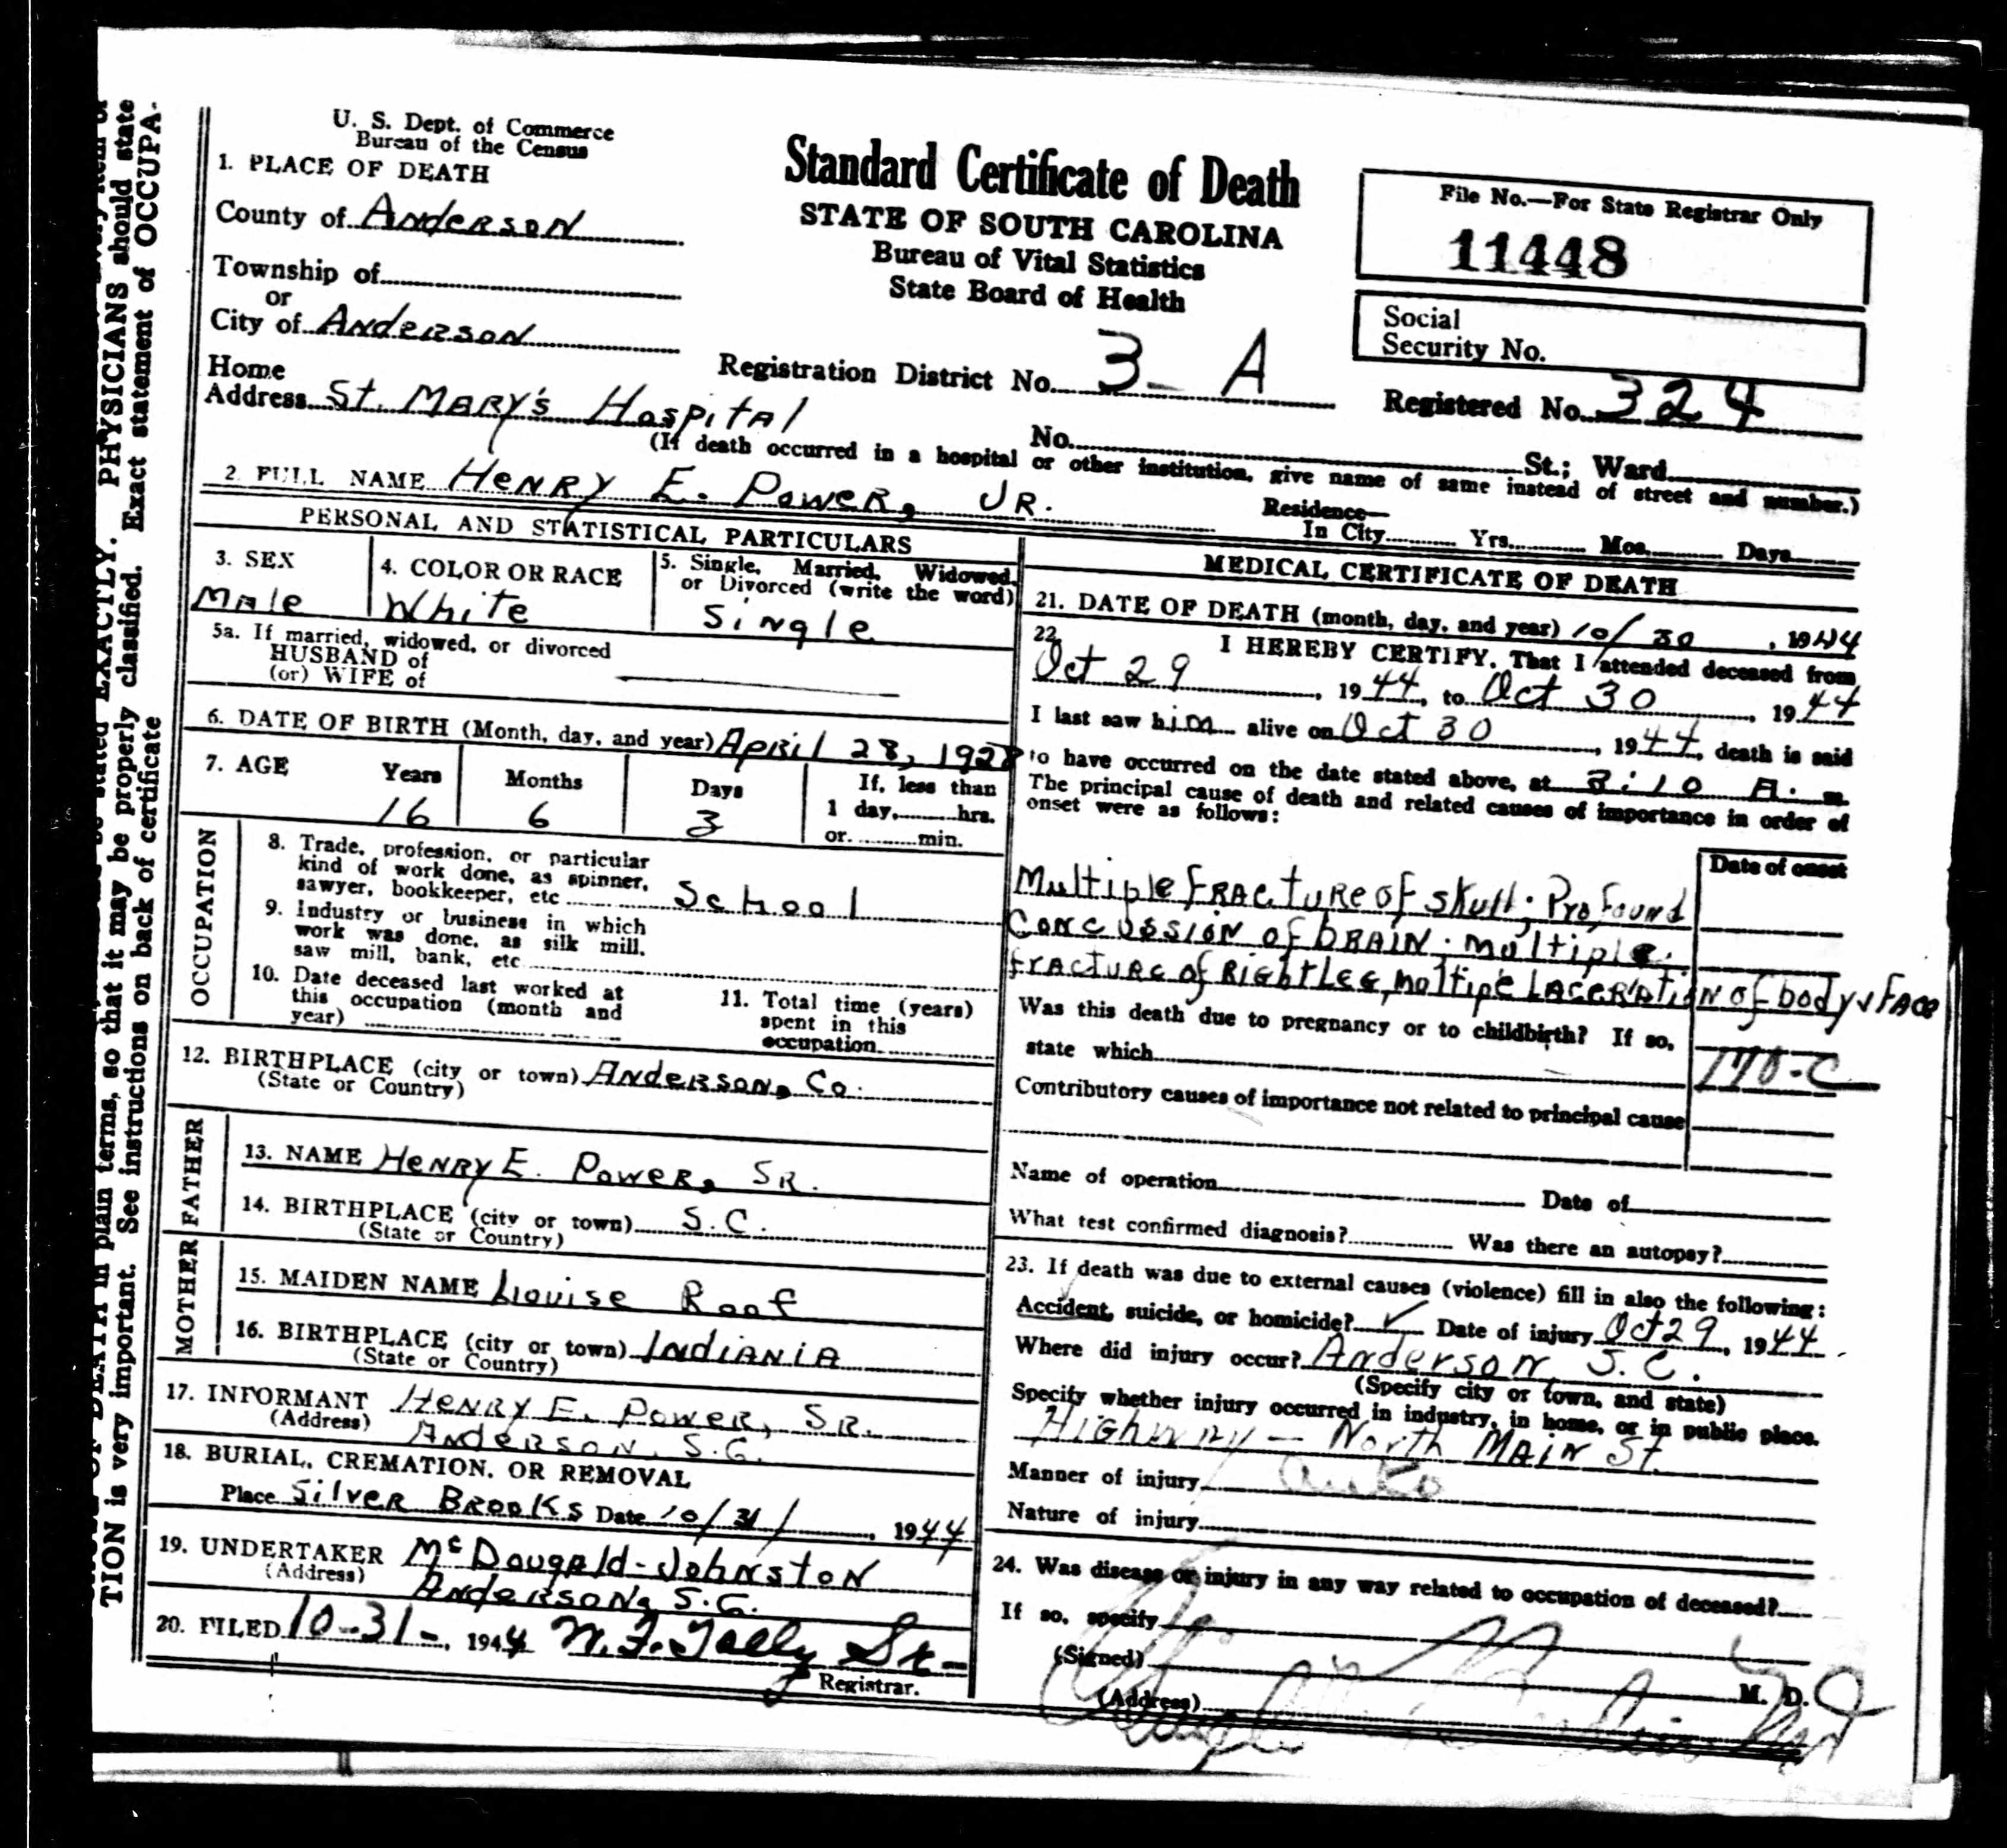 U. S. Dept. of Commerce
Bureau of the Census
1. PLACE OF DEATH
County of Anderson
Township of
or
City of Anderson
Home
Address St. Mary's Hospital
Standard Certificate of Death
STATE OF SOUTH CAROLINA
Bureau of Vital Statistics
State Board of Health
Registration District No. 3-A
File No.—For State Registrar Only
11448
Social
Security No.
Registered No. 324
No. St.; Ward
(If death occurred in a hospital or other institution, give name of same instead of street and number.)
2. FULL NAME Henry E. Power, Jr.
Residence—
In City Yrs. Mos. Days
PERSONAL AND STATISTICAL PARTICULARS
3. SEX
Male
4. COLOR OR RACE
White
5. Single, Married, Widowed,
or Divorced (write the word)
Single
5a. If married, widowed, or divorced
HUSBAND of
(or) WIFE of
6. DATE OF BIRTH (Month, day, and year) April 28, 1928
7. AGE
Years Months Days
16 6 3
If, less than
1 day, hrs.
or min.
OCCUPATION
8. Trade, profession, or particular
kind of work done, as spinner,
sawyer, bookkeeper, etc School
9. Industry or business in which
work was done, as silk mill,
saw mill, bank, etc
10. Date deceased last worked at
this occupation (month and
year)
11. Total time (years)
spent in this
occupation
12. BIRTHPLACE (city or town) Anderson, Co.
(State or Country)
FATHER
13. NAME Henry E. Power, Sr.
14. BIRTHPLACE (city or town) S.C.
(State or Country)
MOTHER
15. MAIDEN NAME Liouise Roof
16. BIRTHPLACE (city or town) Indiania
(State or Country)
17. INFORMANT Henry E. Power, Sr.
(Address) Anderson, S.C.
18. BURIAL, CREMATION, OR REMOVAL
Place Silver Brooks Date 10/31/, 1944
19. UNDERTAKER McDougald-Johnston
(Address) Anderson, S.C.
20. FILED 10-31-, 1944
Registrar.
MEDICAL CERTIFICATE OF DEATH
21. DATE OF DEATH (month, day, and year) 10/30, 1944
22. I HEREBY CERTIFY, That I attended deceased from
Oct 29, 1944, to Oct 30, 1944
I last saw him alive on Oct 30, 1944, death is said
to have occurred on the date stated above, at :10 A. m.
The principal cause of death and related causes of importance in order of
onset were as follows:
Date of onset
Multiple Fracture of Skull; Profound
Concussion of brain. multiple
fracture of Right Leg, moltipe Laceration of body & Face
Was this death due to pregnancy or to childbirth? If so,
state which
170-C
Contributory causes of importance not related to principal cause
Name of operation Date of
What test confirmed diagnosis? Was there an autopsy?
23. If death was due to external causes (violence) fill in also the following:
Accident, suicide, or homicide? ✓ Date of injury Oct 29, 1944.
Where did injury occur? Anderson, S.C.
(Specify city or town, and state)
Specify whether injury occurred in industry, in home, or in public place.
Highway — North Main St.
Manner of injury auto
Nature of injury
24. Was disease or injury in any way related to occupation of deceased?
If so, specify
(Signed) M. D.
(Address)
PHYSICIANS should state
stated EXACTLY.
OF DEATH in plain terms, so that it may be properly classified. Exact statement of OCCUPA-
TION is very important. See instructions on back of certificate